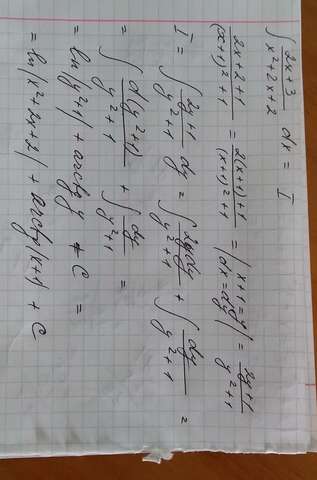 ∫ (2x+3)/(x²+2x+2) dx = I
(2x+2+1)/((x+1)²+1) = (2(x+1)+1)/((x+1)²+1) = | x+1=y dx=dy | = (2y+1)/(y²+1)
I = ∫ (2y+1)/(y²+1) dy = ∫ 2ydy/(y²+1) + ∫ dy/(y²+1) =
= ∫ d(y²+1)/(y²+1) + ∫ dy/(y²+1) =
= ln|y²+1| + arctg y + C =
= ln|x²+2x+2| + arctg(x+1) + C